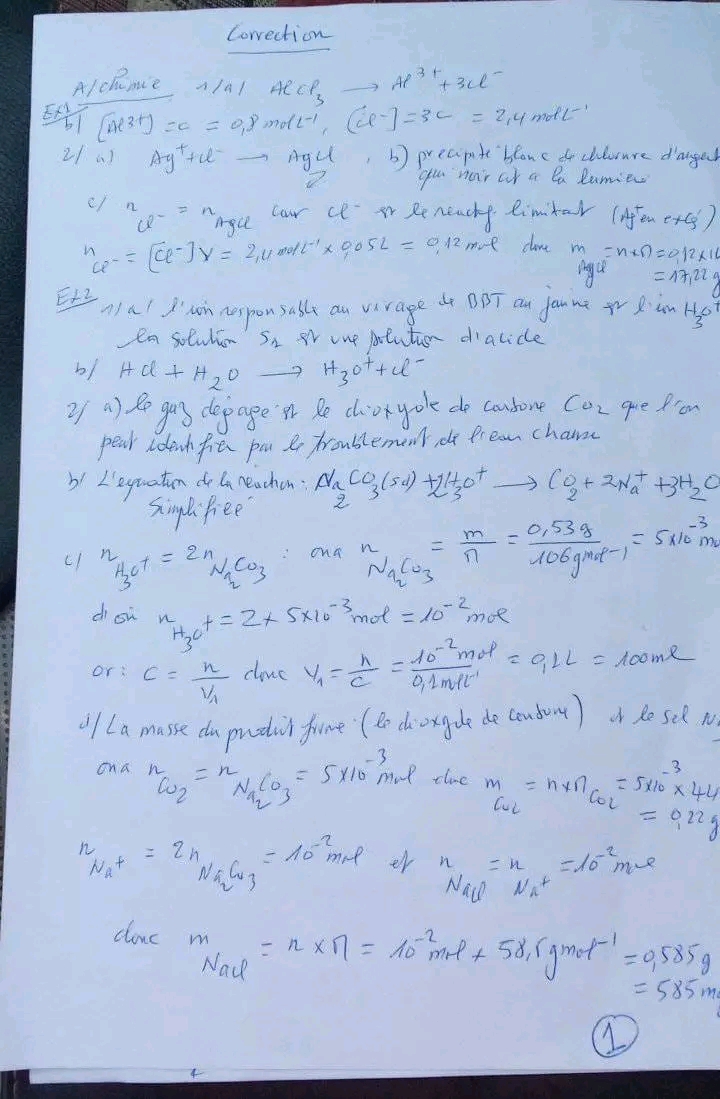 Correction
A/chimie 1/a/ AlCl3 → Al3+ + 3Cl-
Ex1
b/ [Al3+] = c = 0,8 mol L-1, [Cl-] = 3c = 2,4 mol L-1
2/ a) Ag+ + Cl- → AgCl, b) précipité blanc de chlorure d'argent
qui noircit à la lumière
c/ nCl- = nAgCl car Cl- est le réactif limitant (Ag+ en excé)
nCl- = [Cl-]V = 2,4 mol L-1 × 0,05L = 0,12 mol donc mAgCl = n×M = 0,12×1
= 17,22g
Ex2 1/a/ l'ion responsable au virage de BBT au jaune est l'ion H3O+
la solution S1 est une solution d'acide
b/ HCl + H2O → H3O+ + Cl-
2/ a) le gaz dégagé est le dioxyde de carbone CO2 que l'on
peut identifier par le troublement de l'eau chaux
b/ L'equation de la réaction : Na2CO3(sd) + 2H3O+ → CO2 + 2Na+ + 3H2O
Simplifiée
c/ nH3O+ = 2nNa2CO3 : on a nNa2CO3 = m/M = 0,53g/106gmol-1 = 5×10-3 mo
d'où nH3O+ = 2 × 5×10-3 mol = 10-2 mol
or : C = n/V1 donc V1 = n/C = 10-2 mol/0,1mol L-1 = 0,1L = 100ml
d/ La masse du produit formé (le dioxyde de carbone) et le sel N
on a nCO2 = nNa2CO3 = 5×10-3 mol donc mCO2 = n×MCO2 = 5×10-3 × 44
= 0,22g
nNa+ = 2nNa2CO3 = 10-2 mol et nNaCl = nNa+ = 10-2 mol
donc mNaCl = n × M = 10-2 mol × 58,5 gmol-1 = 0,585g
= 585mg
1